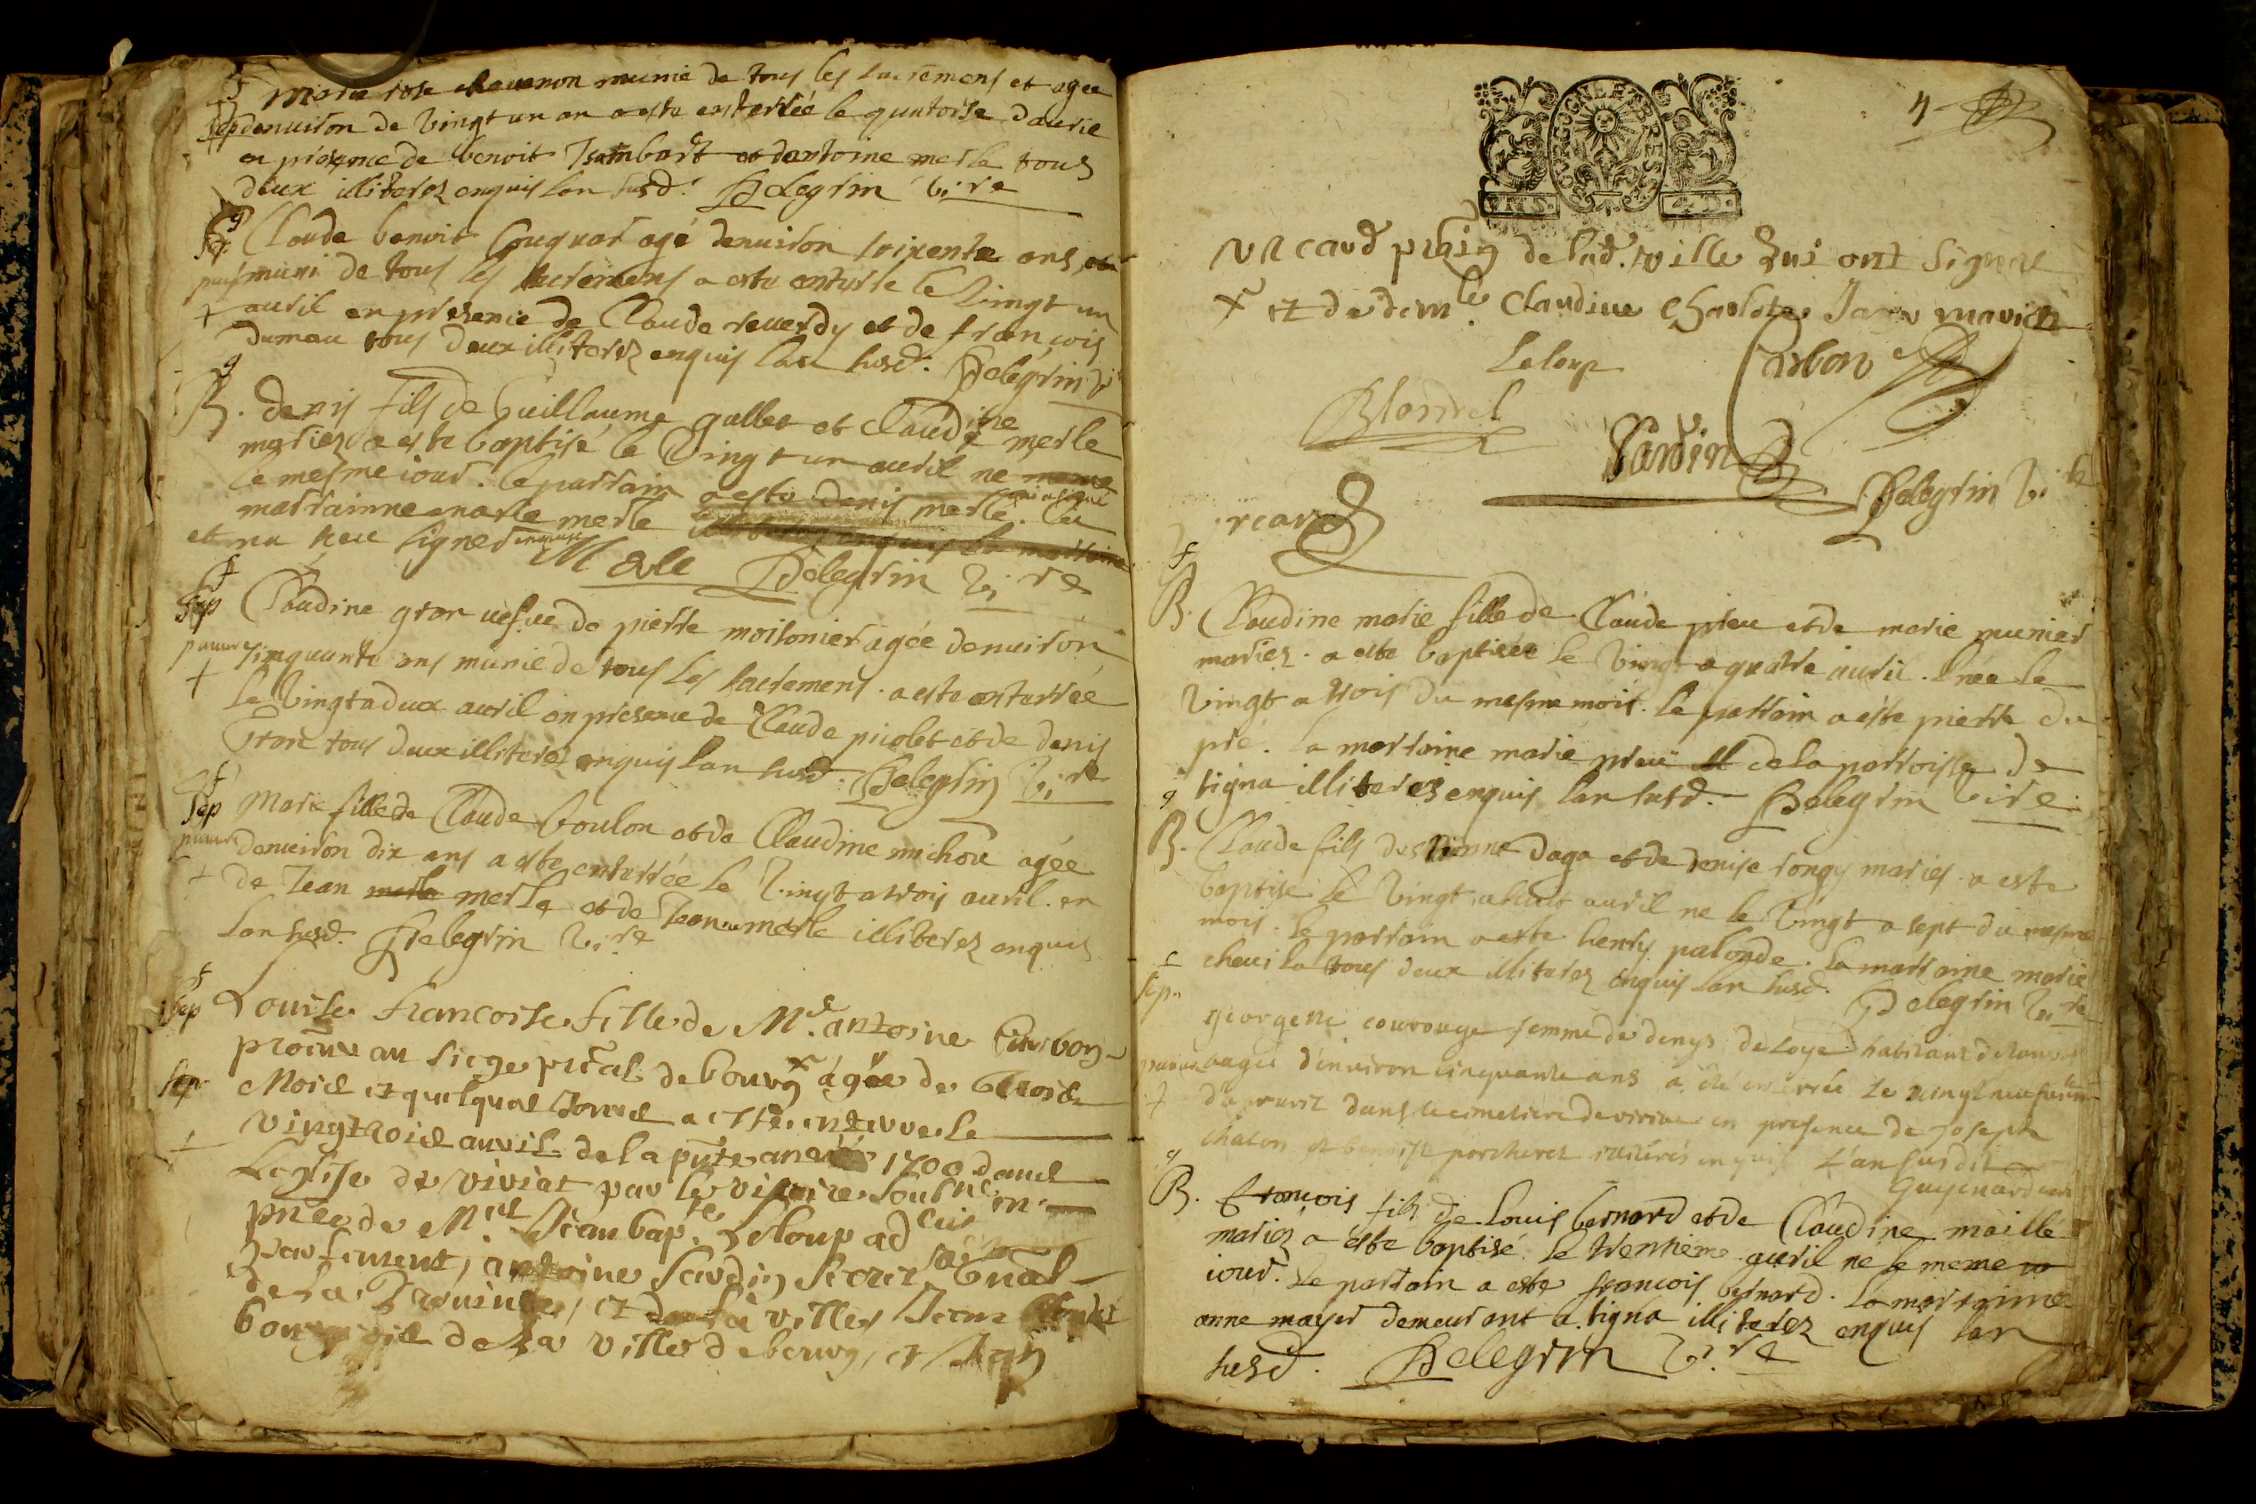 f
Marie rose chauanon munie de tous les sacremens et agee
Sep denuiron de vingt un an a esté enterrée le quatorse dauril
en présence de benoit Isambart et dantoine merle tous
deux illiterez enquis lan susd. Pelegrin vi.re
g
Sep. Claude benoit Couquar agé denuiron soixente ans
muni de tous les sacremens a esté enterré le vingt un
+ auril en présence de Claude reuerdy et de francois
dumau tous deux illiterez enquis lan susd. Pelegrin
g
B. denis fils de Guillaume gallet et Claudine merle
mariez a este baptisé le Vingt un auril ne
le mesme iour. le parrain a esté denis merle. la
marrainne merle
et na sceu signer enquise
Merle Pelegrin vi.re
f
Sep Claudine gror uefue de pierre moisonier agée denuiron
pauure sinquante ans munie de tous les sacremens. a esté enterrée
+ le vingtadeux auril en presence de Claude picolet et de denis
Gror tous deux illiterez enquis lan susd. Pelegrin vi.re
f
Sep Marie fille de Claude boulon et de Claudine michou agée
pauure denuiron dix ans a esté enterrée le vingt atrois auril. en
+ de Jean merle merle et de Jean merle illiterez enquis
lan susd. Pelegrin vi.re
f
Sep Louise francoise fille de M.e antoine
procure au siege p̃ral de bourg agée de trois
Sep mois et quelques Jours a este enterree le
+ vingtrois auril de la p̃nte année 1700 dans
Leglise de viriat par le vicaire soubne en
pñce de M.re Jean bap.te Leloup ad
parlement, antoine Jardin Secret.re
de la Prouince, et de la ville, Jean Blondel
bourgois de la ville de bourg, et Jean
BOURGOGNE ET BRESSE
4
de lad. ville qui ont signe
et de dem.lle Claudine Charlote
Leloup Carbon
Blondel
Jardin
Pelegrin vi.re
f
B. Claudine marie fille de Claude preu et de marie munier
mariez. a esté baptisée le vingt a quatre auril. née le
vingt a trois du mesme mois. le parrain a esté pierre du
pré. la marraine marie preu de la parroisse de
tigna illiterez enquis lan susd. Pelegrin vi.re
g
B. Claude fils destienne daga et de denise rongy mariez. a esté
baptisé le vingt ahuit auril ne le vingt a sept du mesme
mois. le parrain a esté henry palonde. la marraine marie
cheuila tous deux illiterez enquis lan susd. Pelegrin vi.re
f
Sep. Georgette courouge femme de denys de Loye habitant de
pauure aagée denuiron cinquante ans a été enterrée le vingt neufuieme
+ dapuril dans le cimetiere de viria en presence de Joseph
chaton et benoist porcheres illiterés enquis L'an susdit
Guyenard
g
B. francois fils de Louis bernard et de Claudine maillé
mariez a esté baptisé. le trentieme auril ne le meme
iour. le parrain a esté francois bernard. la marraine
anne mayer demeurant a tigna illiterez enquis lan
susd. Pelegrin vi.re